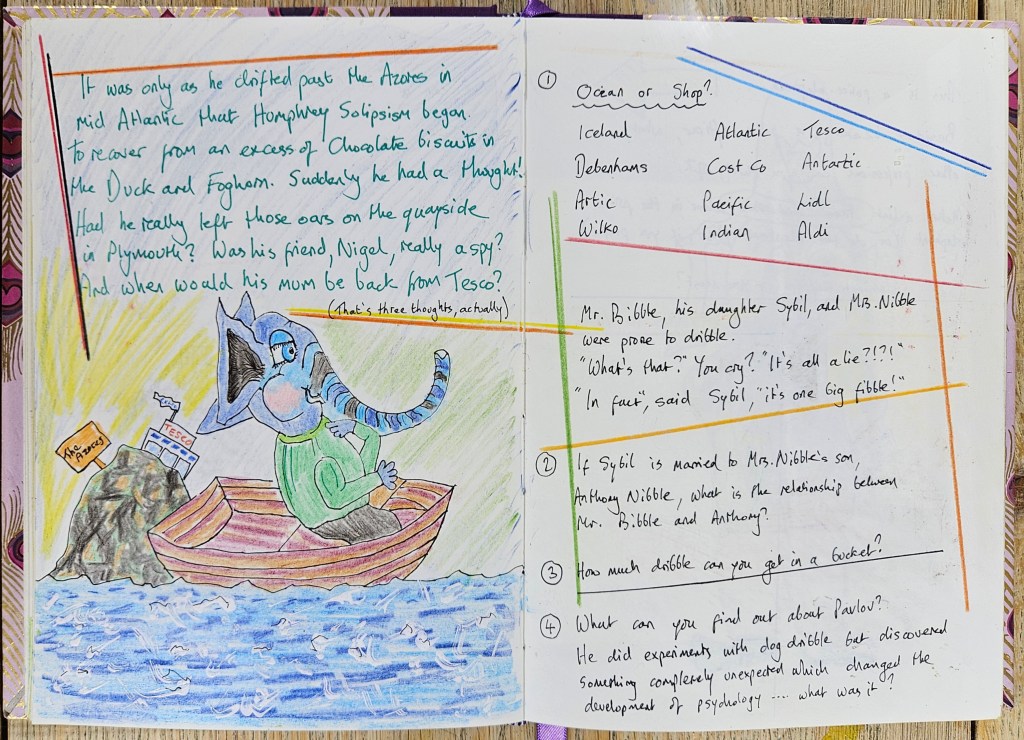 It was only as he drifted past the Azores in
mid Atlantic that Humphrey Solipsism began
to recover from an excess of Chocolate biscuits in
the Duck and Foghorn. Suddenly he had a thought!
Had he really left those oars on the quayside
in Plymouth? Was his friend, Nigel, really a spy?
And when would his mum be back from Tesco?
(That's three thoughts, actually)
The Azores
TESCO
① Ocean or Shop?
Iceland Atlantic Tesco
Debenhams Cost Co Antartic
Artic Pacific Lidl
Wilko Indian Aldi
Mr. Bibble, his daughter Sybil, and Mrs. Nibble
were prone to dribble.
"What's that?" You cry? "It's all a lie?!?!"
"In fact", said Sybil, "it's one big fibble!"
② If Sybil is married to Mrs. Nibble's son,
Anthony Nibble, what is the relationship between
Mr. Bibble and Anthony?
③ How much dribble can you get in a bucket?
④ What can you find out about Pavlov?
He did experiments with dog dribble but discovered
something completely unexpected which changed the
development of psychology .... what was it?